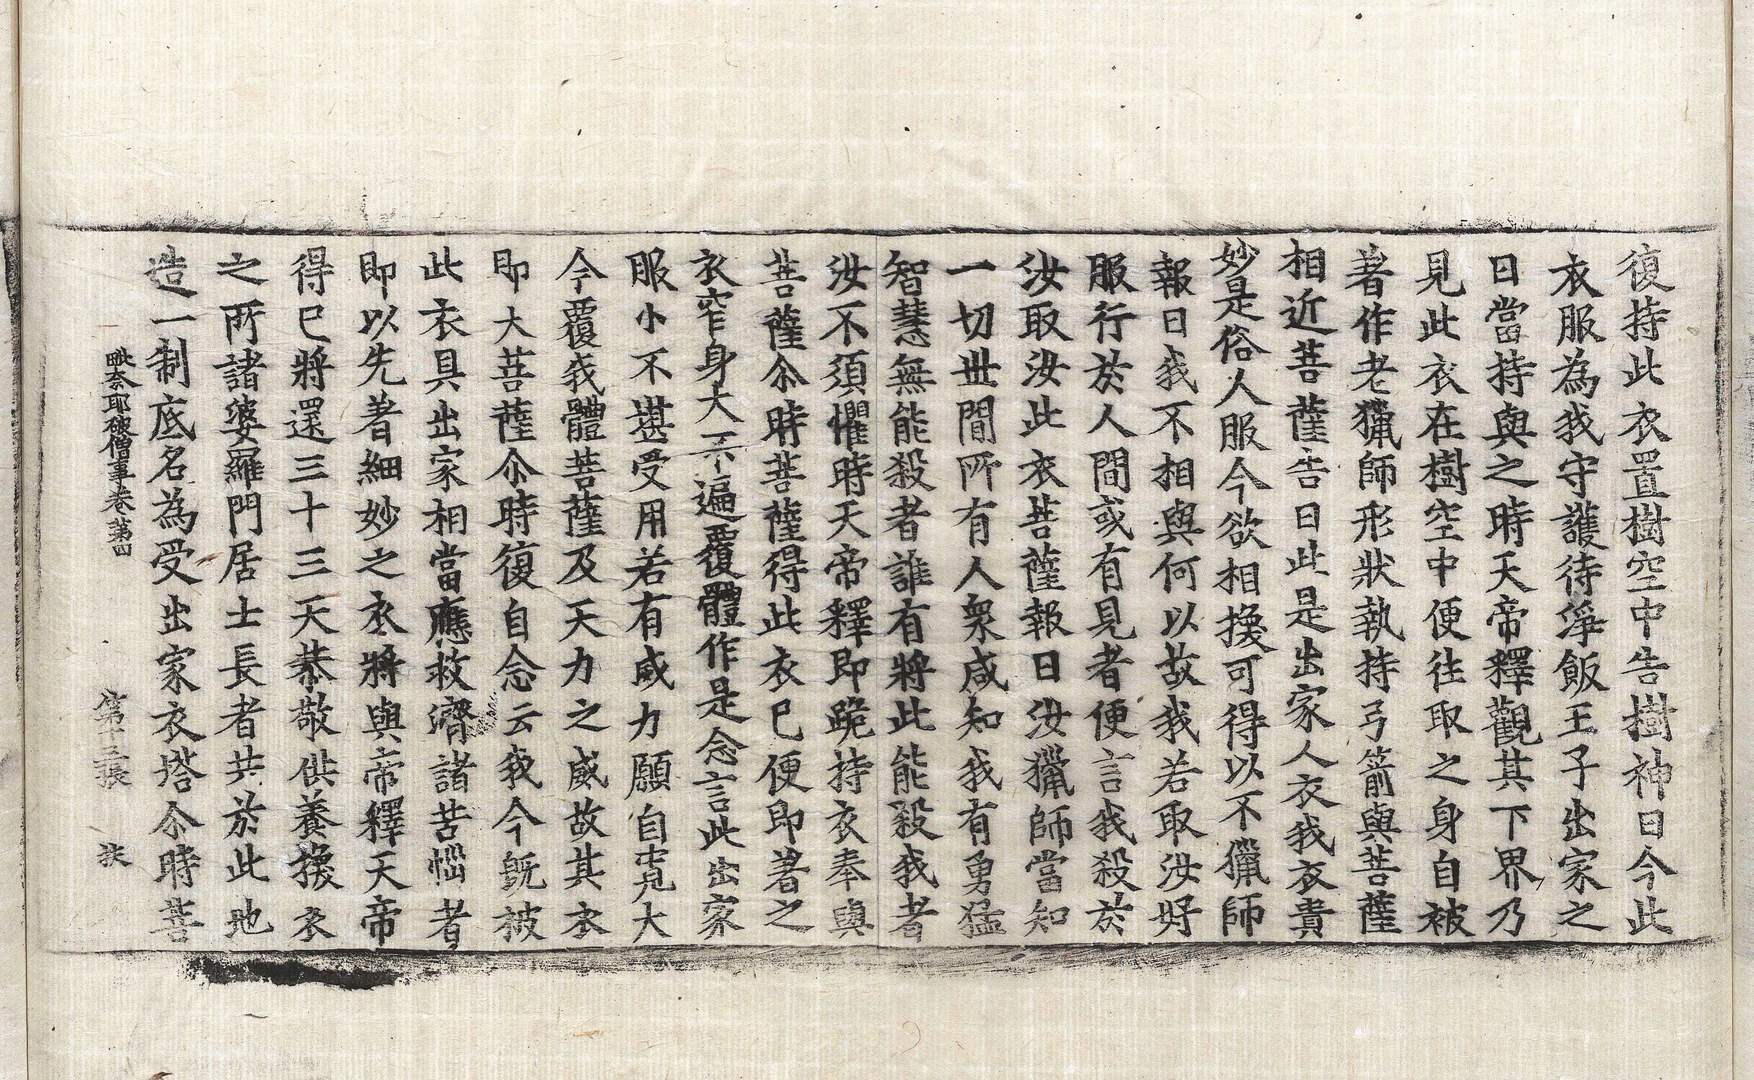 復持此衣置樹空中告樹神曰今此
衣服為我守護待淨飯王子出家之
日當持與之時天帝釋觀其下界乃
見此衣在樹空中便往取之身自被
著作老獵師形狀執持弓箭與菩薩
相近菩薩告曰此是出家人衣我衣貴
妙是俗人服今欲相換可得以不獵師
報曰我不相與何以故我若取汝好
服行於人間或有見者便言我殺於
汝取汝此衣菩薩報曰汝獵師當知
一切世間所有人衆咸知我有勇猛
智慧無能殺者誰有將此能殺我者
汝不須懼時天帝釋即跪持衣奉與
菩薩尒時菩薩得此衣已便即著之
衣窄身大不遍覆體作是念言此出家
服小不堪受用若有威力願自寬大
今覆我體菩薩及天力之威故其衣
即大菩薩尒時復自念云我今旣被
此衣具出家相當應救濟諸苦惱者
即以先著細妙之衣將與帝釋天帝
得已將還三十三天恭敬供養換衣
之所諸婆羅門居士長者共於此地
造一制底名為受出家衣塔尒時菩
毗奈耶破僧事卷第四 第十三張 扶